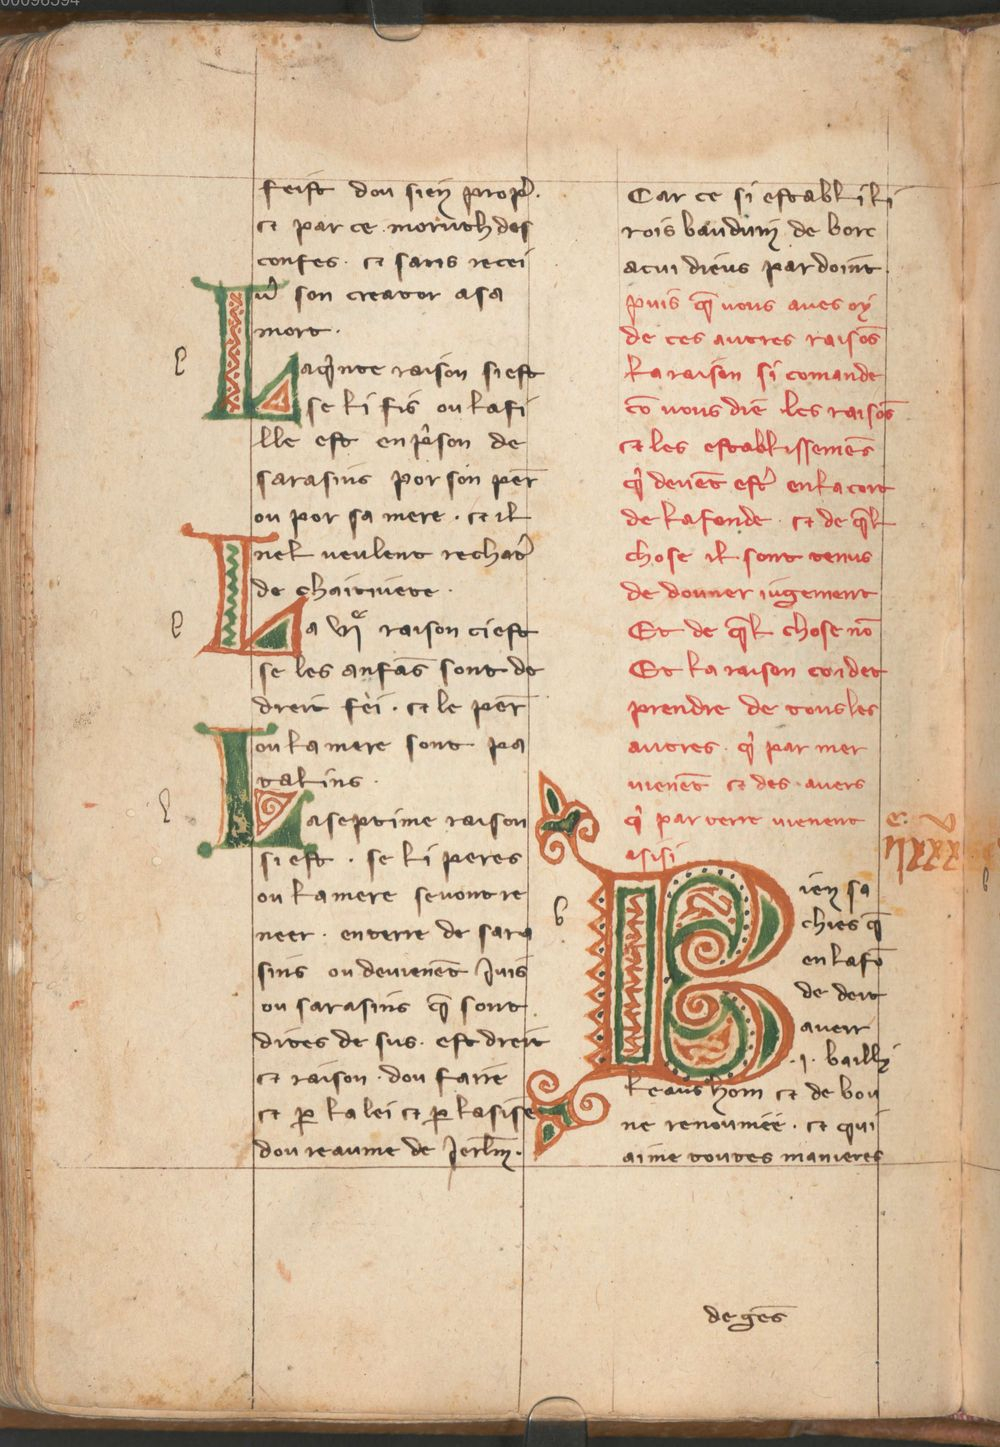 00096394
feist dou sien propre̾.
et par ce moruth des
confes. et sans recei
u̾ son creator a sa
mort.
La q̾inte raison si est
se li fis ou la fi
lle est en p̾ison de
sarasins por son per̄
ou por sa mere. et il
nel veulent rechat̾
de chaitivete.
La viͤ raison ci est
se les anfās sont de
dreit fei. et le per̄
ou la mere sont pa
talins.
La septime raison
si est. se li peres
ou la mere se vont re
neer. en terre de sara
sins ou devienēt Juis
ou sarasins q̄ sont
dites de sus. est dreit
et raison. dou faire
et ꝑ la lei et ꝑ lasise
dou reaume de Jerl̄m.
Car ce si establi li
rois bauduin de borc
a cui dieus pardoint.
puis q̄ vous aves oy
de ces autres raisōs
la raison si comande
cō vous die les raisōs
et les establissemēs
q̾ devēt est̾ en la cort
de la fonde. et de q̄l
chose il sont tenus
de douner iugement
Et de q̄l chose nō
Et la raison con det
prendre de tous les
autres. q̾ par mer
vienēt et des avers
q̾ par terre vienent
asisi
Bien sa
chies q̄
en la fō
de deit
aveir
.i. bailli
leaus hom et de bou
ne renoumee. et qui
aime toutes manieres
de gēs